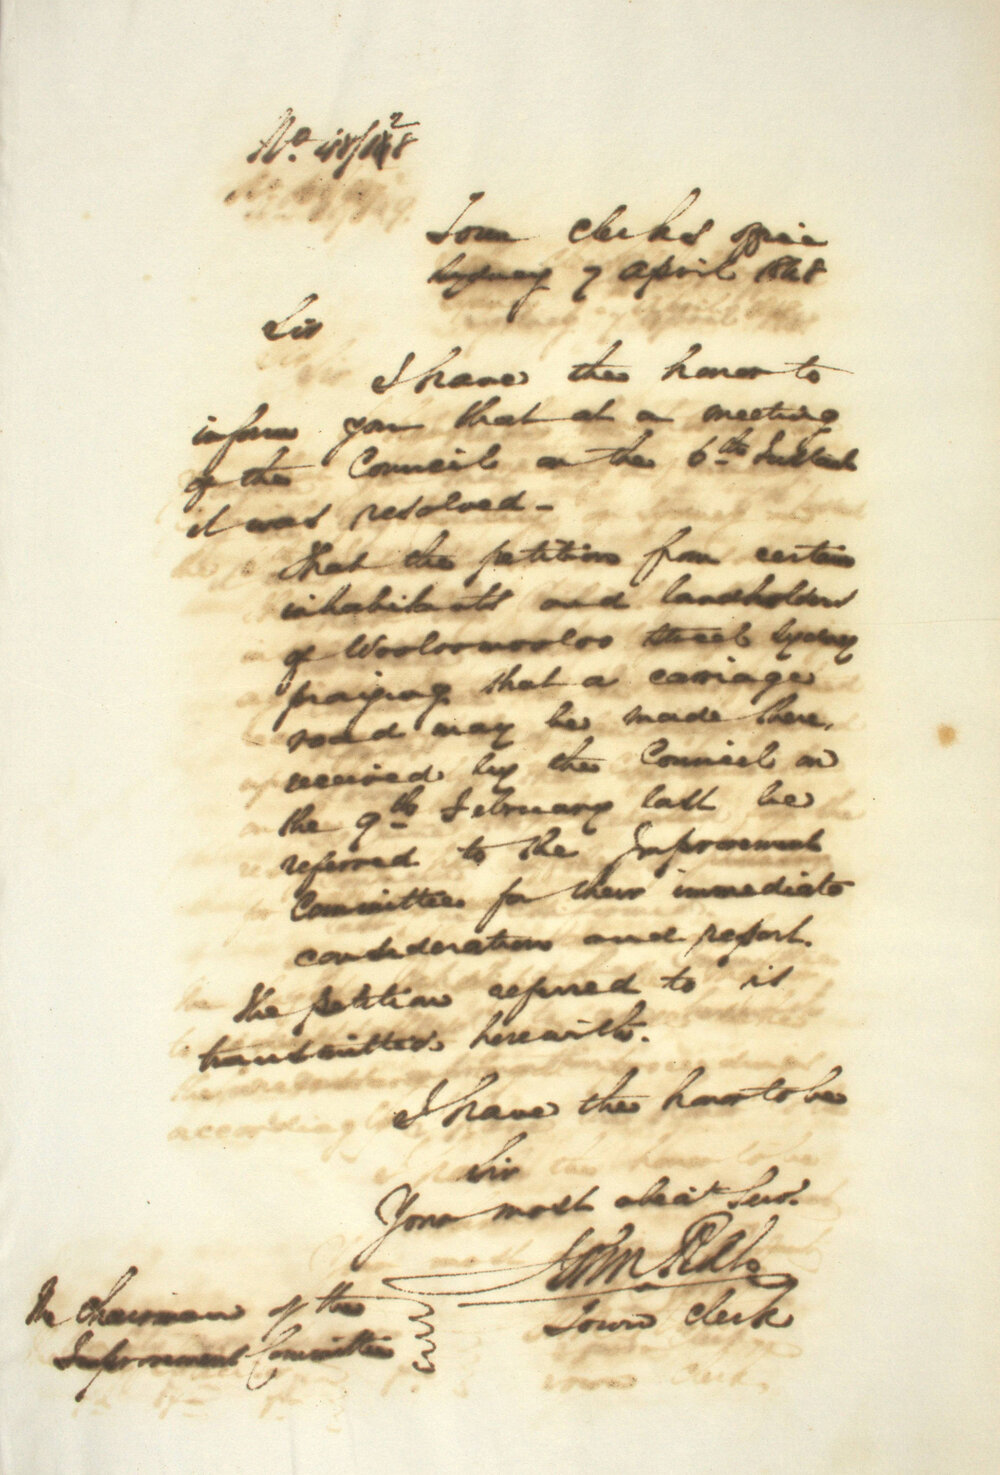 No. 48/
Town Clerk's Office
Sydney 7 April 1848
Sir
I have the honor to
inform you that at a meeting
of the Council on the 6th Instant
it was resolved -
That the petition from certain
inhabitants and landholders
of Wooloomooloo Street Sydney
praying that a carriage
road may be made there,
received by the Council on
the 9th February last be
referred to the Improvement
Committee for their immediate
consideration and report.
The petition referred to is
transmitted herewith.
I have the honor to be
Sir
Your most obedt. Servt.
John
Town Clerk
The Chairman of the
Improvement Committee